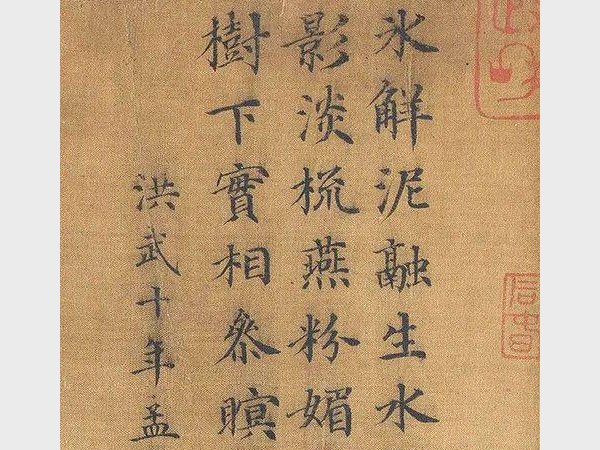 氷解泥融生水
影淡梳燕粉媚
樹下實相叅瞑
洪武十年孟